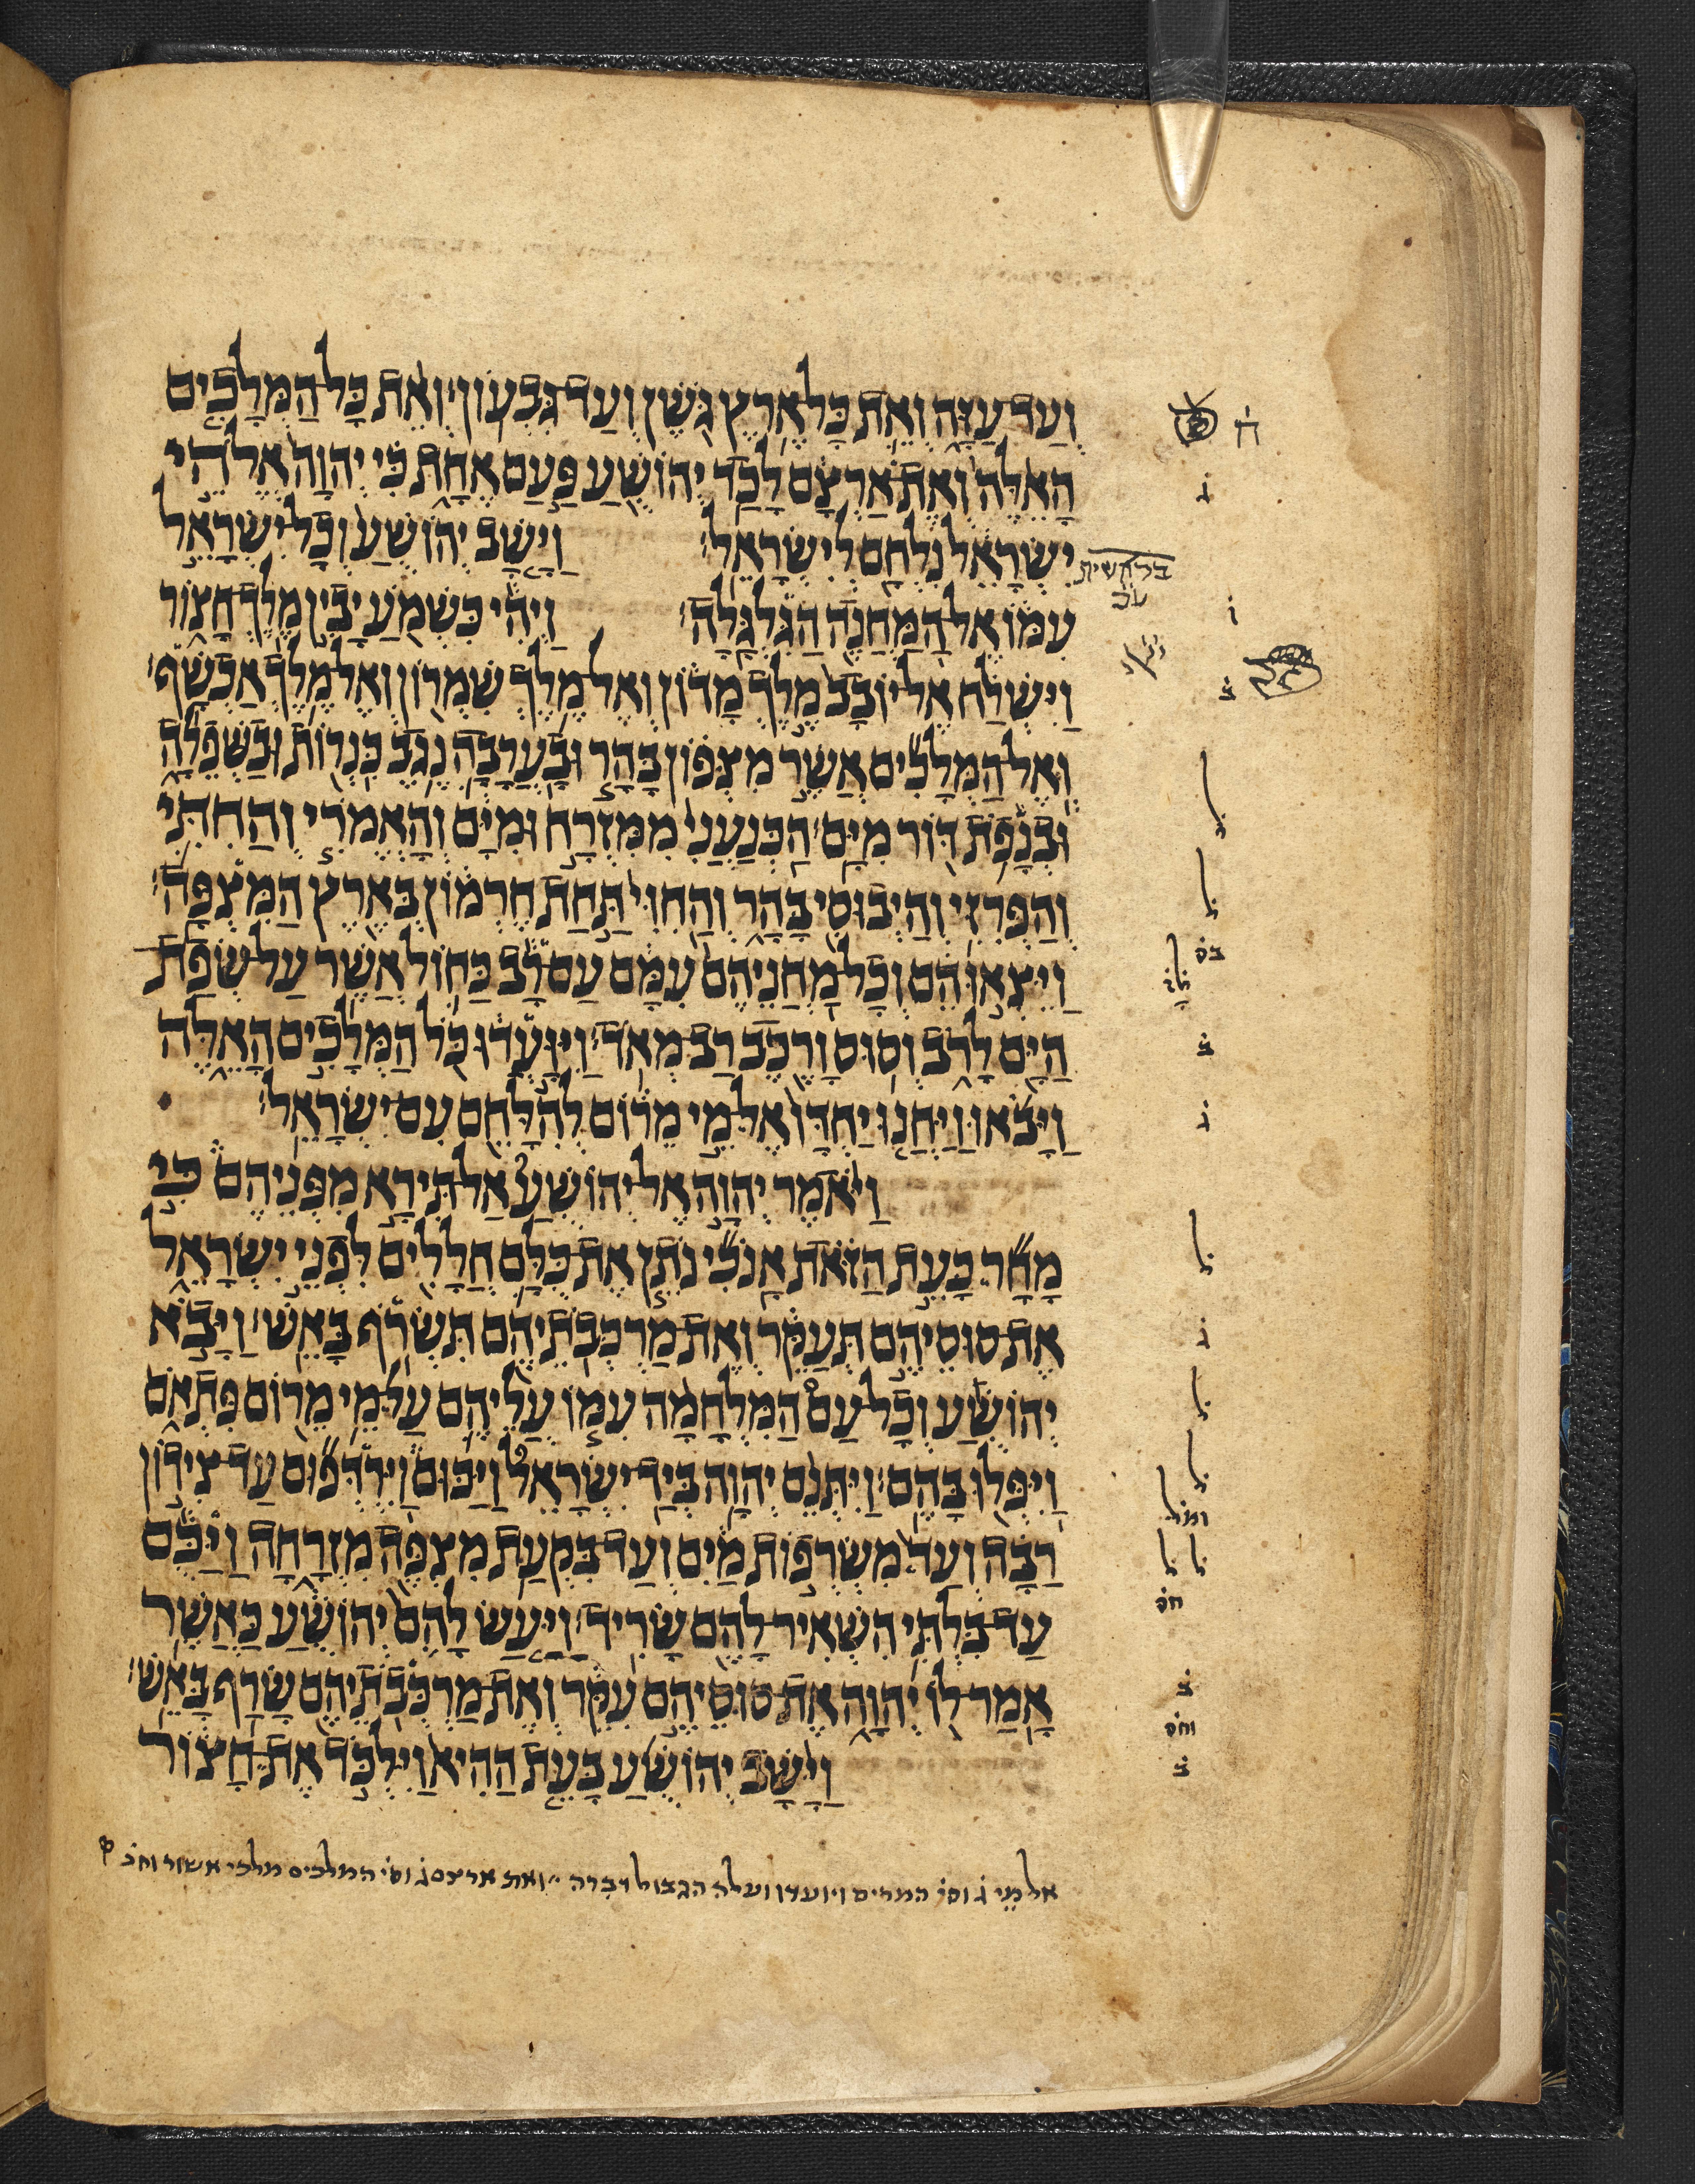 וְעַד עַזָּה וְאֵת כָּל אֶרֶץ גֹּשֶׁן וְעַד גִּבְעוֹן וְאֵת כָּל הַמְּלָכִים
הָאֵלֶּה וְאֶת אַרְצָם לָכַד יְהוֹשֻׁעַ פַּעַם אֶחָת כִּי יְהוָה אֱלֹהֵי
יִשְׂרָאֵל נִלְחָם לְיִשְׂרָאֵל׃ וַיָּשָׁב יְהוֹשֻׁעַ וְכָל יִשְׂרָאֵל
עִמּוֹ אֶל הַמַּחֲנֶה הַגִּלְגָּלָה׃ וַיְהִי כִּשְׁמֹעַ יָבִין מֶלֶךְ חָצוֹר
וַיִּשְׁלַח אֶל יוֹבָב מֶלֶךְ מָדוֹן וְאֶל מֶלֶךְ שִׁמְרוֹן וְאֶל מֶלֶךְ אַכְשָׁף׃
וְאֶל הַמְּלָכִים אֲשֶׁר מִצְּפוֹן בָּהָר וּבָעֲרָבָה נֶגֶב כִּנְרוֹת וּבַשְּׁפֵלָה
וּבְנָפוֹת דּוֹר מִיָּם׃ הַכְּנַעֲנִי מִמִּזְרָח וּמִיָּם וְהָאֱמֹרִי וְהַחִתִּי
וְהַפְּרִזִּי וְהַיְבוּסִי בָּהָר וְהַחִוִּי תַּחַת חֶרְמוֹן בְּאֶרֶץ הַמִּצְפָּה׃
וַיֵּצְאוּ הֵם וְכָל מַחֲנֵיהֶם עִמָּם עַם רָב כַּחוֹל אֲשֶׁר עַל שְׂפַת
הַיָּם לָרֹב וְסוּס וָרֶכֶב רַב מְאֹד׃ וַיִּוָּעֲדוּ כֹּל הַמְּלָכִים הָאֵלֶּה
וַיָּבֹאוּ וַיַּחֲנוּ יַחְדָּו אֶל מֵי מֵרוֹם לְהִלָּחֵם עִם יִשְׂרָאֵל׃
וַיֹּאמֶר יְהוָה אֶל יְהוֹשֻׁעַ אַל תִּירָא מִפְּנֵיהֶם כִּי
מָחָר כָּעֵת הַזֹּאת אָנֹכִי נֹתֵן אֶת כֻּלָּם חֲלָלִים לִפְנֵי יִשְׂרָאֵל
אֶת סוּסֵיהֶם תְּעַקֵּר וְאֶת מַרְכְּבֹתֵיהֶם תִּשְׂרֹף בָּאֵשׁ׃ וַיָּבֹא
יְהוֹשֻׁעַ וְכָל עַם הַמִּלְחָמָה עִמּוֹ עֲלֵיהֶם עַל מֵי מֵרוֹם פִּתְאֹם
וַיִּפְּלוּ בָּהֶם׃ וַיִּתְּנֵם יְהוָה בְּיַד יִשְׂרָאֵל וַיַּכּוּם וַיִּרְדְּפוּם עַד צִידוֹן
רַבָּה וְעַד מִשְׂרְפוֹת מַיִם וְעַד בִּקְעַת מִצְפֶּה מִזְרָחָה וַיַּכֻּם
עַד בִּלְתִּי הִשְׁאִיר לָהֶם שָׂרִיד׃ וַיַּעַשׂ לָהֶם יְהוֹשֻׁעַ כַּאֲשֶׁר
אָמַר לוֹ יְהוָה אֶת סוּסֵיהֶם עִקֵּר וְאֶת מַרְכְּבֹתֵיהֶם שָׂרַף בָּאֵשׁ׃
וַיָּשָׁב יְהוֹשֻׁעַ בָּעֵת הַהִיא וַיִּלְכֹּד אֶת חָצוֹר
ח
ג
בראשית
ו
ב
ל
ל
ל
ב
ג
ל
ג
ל
ל
ל ל
חס
ב
וחס
ב
אל מֵי ג וסי המרים ויועדו ועלה הגבול דברה ואת ארצם ג וסי המלכים מלכי אשור וחב